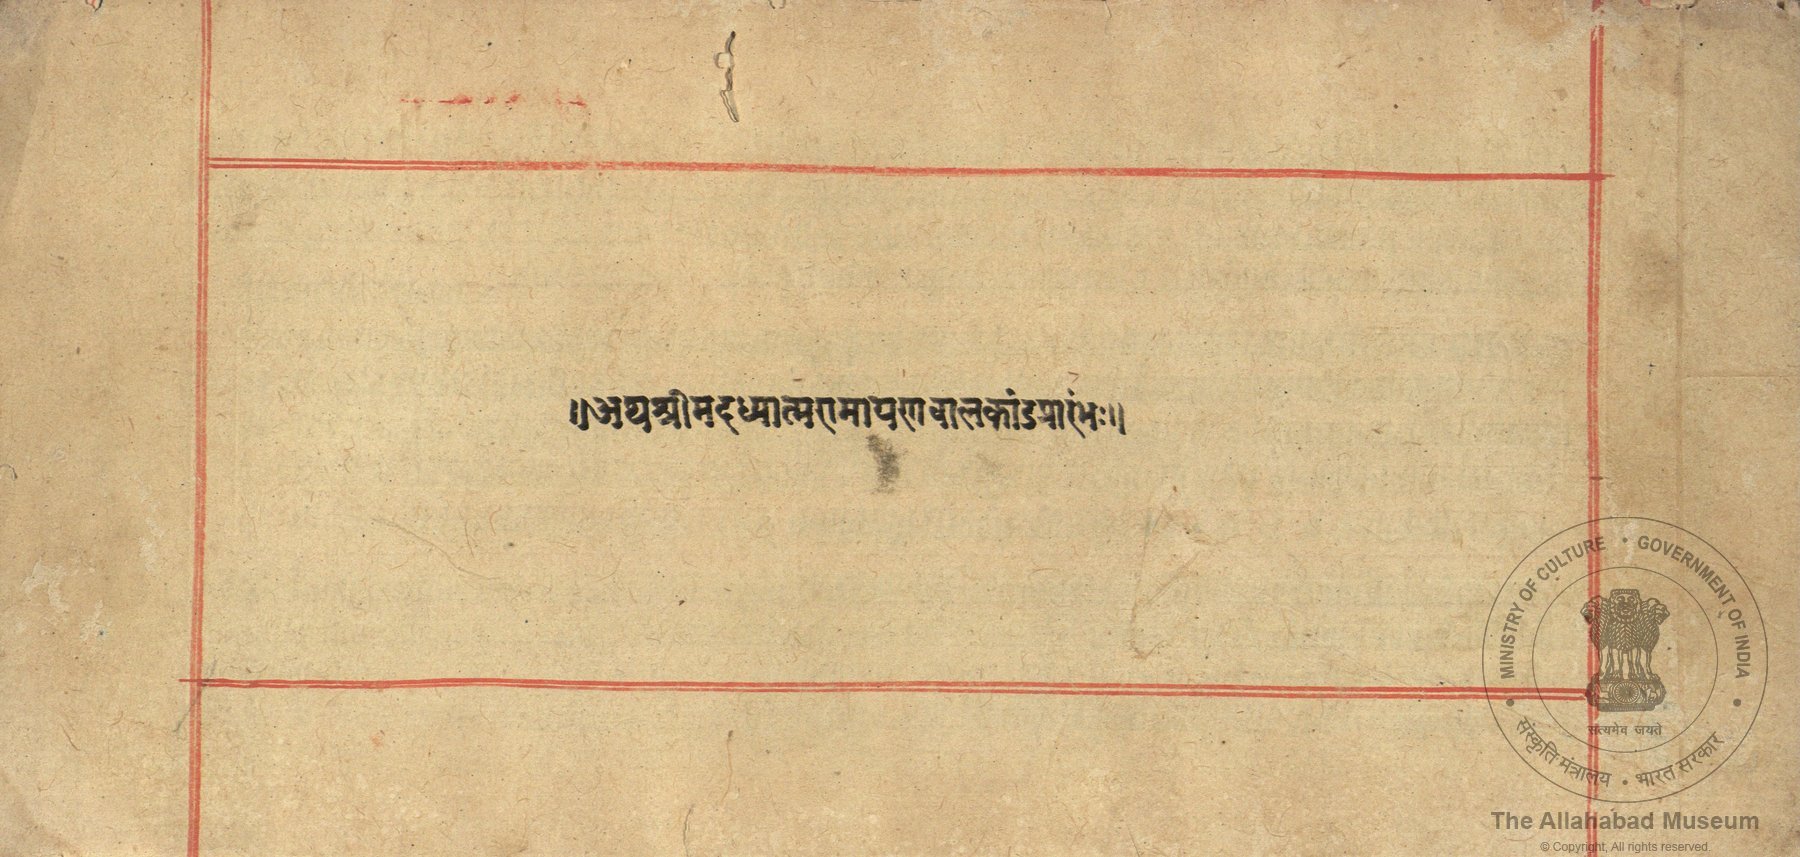 ॥अथश्रीमदध्यात्मरामायणबालकांडप्रारंभः॥
MINISTRY OF CULTURE • GOVERNMENT OF INDIA
सत्यमेव जयते
संस्कृति मंत्रालय • भारत सरकार
The Allahabad Museum
© Copyright, All rights reserved.